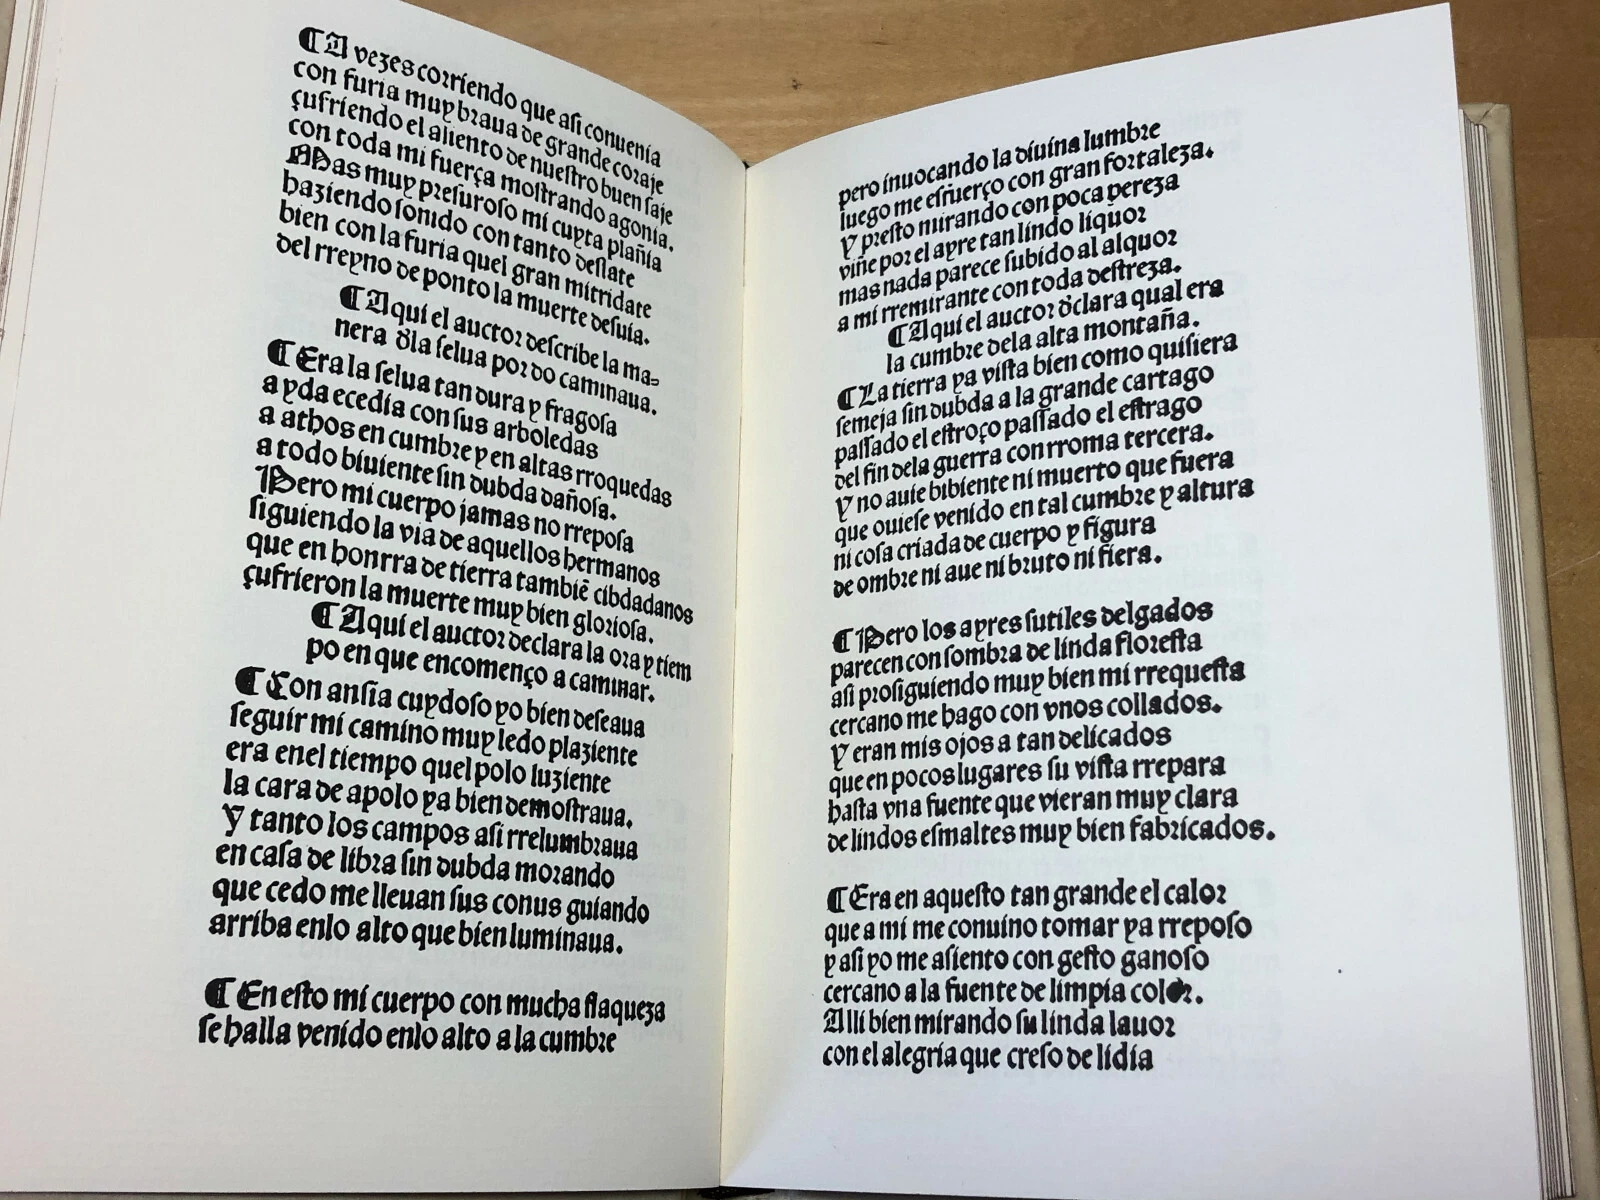 ¶A vezes corriendo que asi conuenia
con furia muy braua de grande coraje
çufriendo el aliento de nuestro buen saje
con toda mi fuerça mostrando agonia.
Mas muy presuroso mi cuyta plañia
haziendo sonido con tanto deslate
bien con la furia quel gran mitridate
del rreyno de ponto la muerte desuia.
¶Aqui el auctor describe la ma-
nera d̃la selua por do caminaua.
¶Era la selua tan dura y fragosa
a yda ecedia con sus arboledas
a athos en cumbre y en altas rroquedas
a todo biuiente sin dubda dañosa.
Pero mi cuerpo jamas no rreposa
siguiendo la via de aquellos hermanos
que en honrra de tierra tambiẽ cibdadanos
çufrieron la muerte muy bien gloriosa.
¶Aqui el auctor declara la ora y tiem
po en que encomenço a caminar.
¶Con ansia cuydoso yo bien deseaua
seguir mi camino muy ledo plaziente
era enel tiempo quel polo luziente
la cara de apolo ya bien demostraua.
Y tanto los campos asi rrelumbraua
en casa de libra sin dubda morando
que cedo me lleuan sus conus guiando
arriba enlo alto que bien luminaua.
¶En esto mi cuerpo con mucha flaqueza
se halla venido enlo alto a la cumbre
pero inuocando la diuina lumbre
luego me esfuerço con gran fortaleza.
Y presto mirando con poca pereza
viñe por el ayre tan lindo liquor
mas nada parece subido al alquor
a mi rremirante con toda destreza.
¶Aqui el auctor d̃clara qual era
la cumbre dela alta montaña.
¶La tierra ya vista bien como quisiera
semeja sin dubda a la grande cartago
passado el estroço passado el estrago
del fin dela guerra con rroma tercera.
Y no auie bibiente ni muerto que fuera
que ouiese venido en tal cumbre y altura
ni cosa criada de cuerpo y figura
de ombre ni aue ni bruto ni fiera.
¶Pero los ayres sutiles delgados
parecen con sombra de linda floresta
asi prosiguiendo muy bien mi rrequesta
cercano me hago con vnos collados.
Y eran mis ojos a tan delicados
que en pocos lugares su vista rrepara
hasta vna fuente que vieran muy clara
de lindos esmaltes muy bien fabricados.
¶Era en aquesto tan grande el calor
que a mi me conuino tomar ya rreposo
y asi yo me asiento con gesto ganoso
cercano a la fuente de limpia color.
Alli bien mirando su linda lauor
con el alegria que creso de lidia